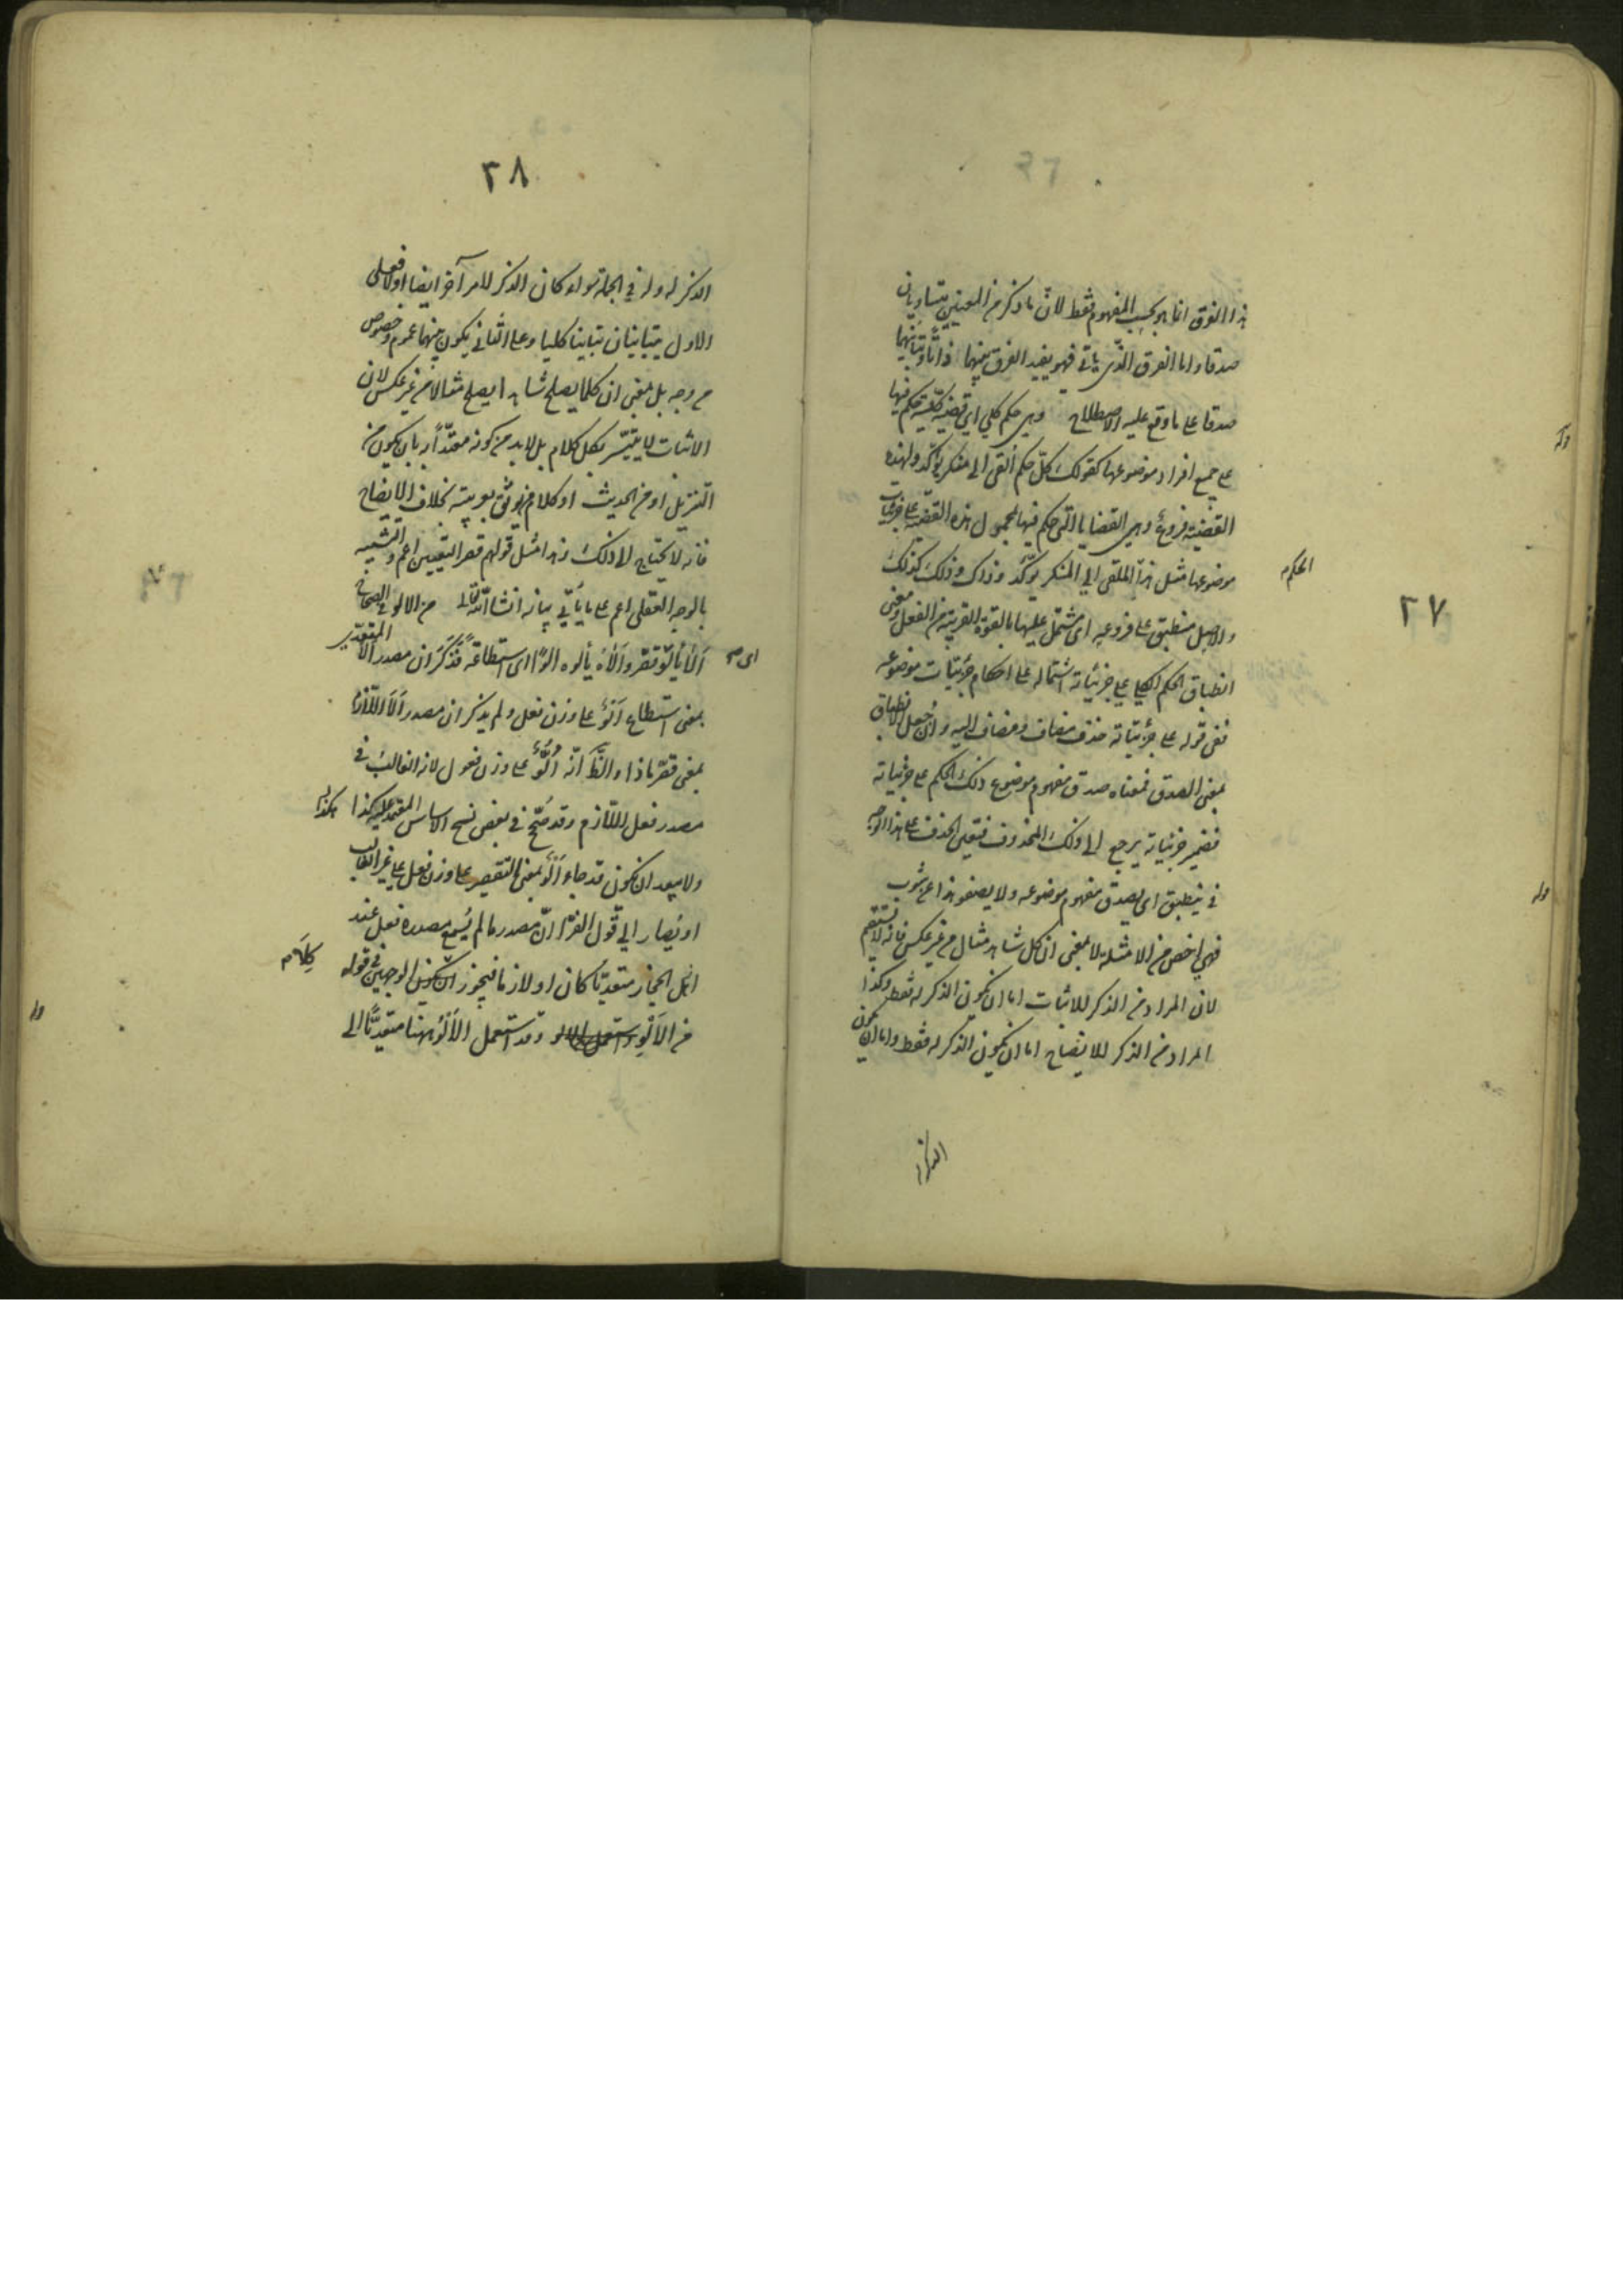 ٢٧
هذا الفرق انما هو بحسب المفهوم فقط لان ما ذكر من المعنيين متساويان
صدقا واما الفرق الذى ياتى فهو يفيد الفرق بينهما
صدقا على ما وقع عليه الاصطلاح وهى حكم كلى اى قضية كلية يحكم فيها
على جميع افراد موضوعها كقولك كلّ حكم القى الى منكر يؤكّد ولهذه
القضية فروع وهى القضايا التى حكم فيها بمحمول هذه القضية على جزئيات
موضوعها مثل هذا الملقى الى المنكر يؤكّد وذاك وذلك كذلك
الحكم
والاصل منطبق على فروعه اى مشتمل عليها بالقوة القريبة من الفعل ومعنى
انطباق الحكم الكلى على جزئياته اشتماله على احكام جزئيات موضوعه
ففى قوله على جزئياته حذف مضاف ومضاف اليه وان جعل الانطباق
بمعنى الصدق فمعناه صدق مفهوم موضوع ذلك الحكم على جزئياته
فضمير جزئياته يرجع الى ذلك المحذوف فتعين الحذف على هذا الوجه
فى ينطبق اى يصدق مفهوم موضوعه ولا يصفو هذا عن شوب
فهى اخص من الامثلة لا بمعنى ان كل شاهد مثال من غير عكس فانه لا يستقيم
لان المراد من الذكر للاثبات اما ان يكون الذكر له فقط وكذا
المراد من الذكر للايضاح اما ان يكون الذكر له فقط واما ان يكون
الذكر له
٢٨
الذكر له وله فى الجملة سواء كان الذكر للامر آخر ايضا اولا فعلى
الاول يتباينان تباينا كليا وعلى الثانى يكون بينهما عموم وخصوص
من وجه بل بمعنى ان كلما يصلح شاهدا يصلح مثالا من غير عكس لان
الاثبات لا يتيسّر بكل كلام بل لابد من كونه معتدّا به بان يكون من
التنزيل او من الحديث او كلام من يوثق بعربيته بخلاف الايضاح
فانه لا يحتاج الى ذلك وهذا مثل قولهم قصر التعيين اعم والتشبيه
بالوجه العقلى اعم على ما يأتى بيانه انشا الله تعالى من الالو فى الصحاح
ألا يألو قصّر وألاه يألوه الوًا اى استطاعة فذكر ان مصدر ألا المتعدى
بمعنى استطاع ألوٌ على وزن فعل ولم يذكر ان مصدر ألا اللازم
بمعنى قصّر ماذا والظ انّه أُلُوٌّ على وزن فعول لانه الغالب فى
مصدر فعل اللّازم وقد صُحّح فى بعض نسخ الاساس المعتمد عليه كذا
ولا يبعد ان يكون قد جاء ألو بمعنى التقصير على وزن فعل على غير الغالب
او يُصار الى قول الفرّا انّ مصدر ما لم يُسمع مصدره فعل عند
اهل الحجاز متعديّا كان او لازما فيجوز الوجهين فى قوله
من الالو وقد استعمل الالو ههنا متعديًا الى